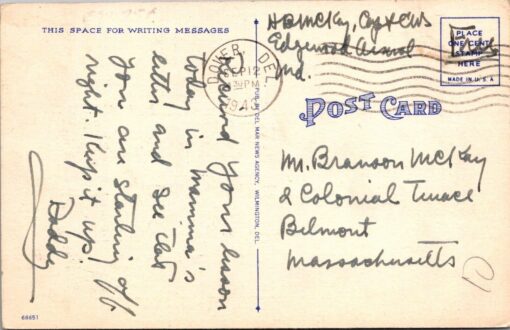 THIS SPACE FOR WRITING MESSAGES
Received your lesson
today in Mamma's
letter and see that
you are starting off
right. Keep it up!
Daddy
68651
PUB. BY DEL MAR NEWS AGENCY, WILMINGTON, DEL.
DOVER, DEL.
SEP 12
PM
H B McKay, Cpt CWS
Edgewood Arsenal
Md.
PLACE
ONE CENT
STAMP
HERE
MADE IN U.S.A
Free
POST CARD
Mr. Branson McKay
2 Colonial Terrace
Belmont
Massachusetts